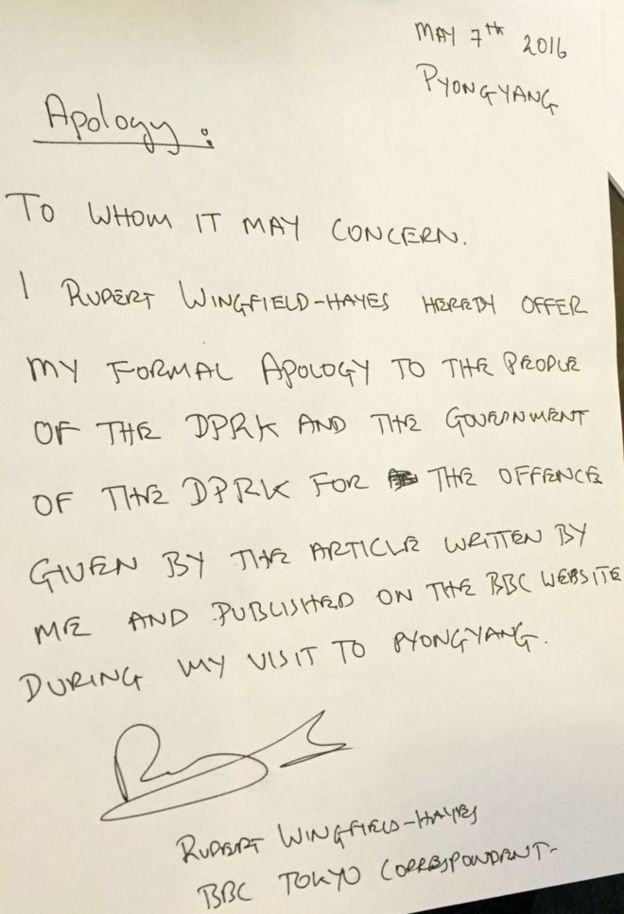 MAY 7th 2016
PYONGYANG
Apology:
TO WHOM IT MAY CONCERN.
I RUPERT WINGFIELD-HAYES HEREBY OFFER
MY FORMAL APOLOGY TO THE PEOPLE
OF THE DPRK AND THE GOVERNMENT
OF THE DPRK FOR THE OFFENCE
GIVEN BY THE ARTICLE WRITTEN BY
ME AND PUBLISHED ON THE BBC WEBSITE
DURING MY VISIT TO PYONGYANG.
RUPERT WINGFIELD-HAYES
BBC TOKYO CORRESPONDENT-